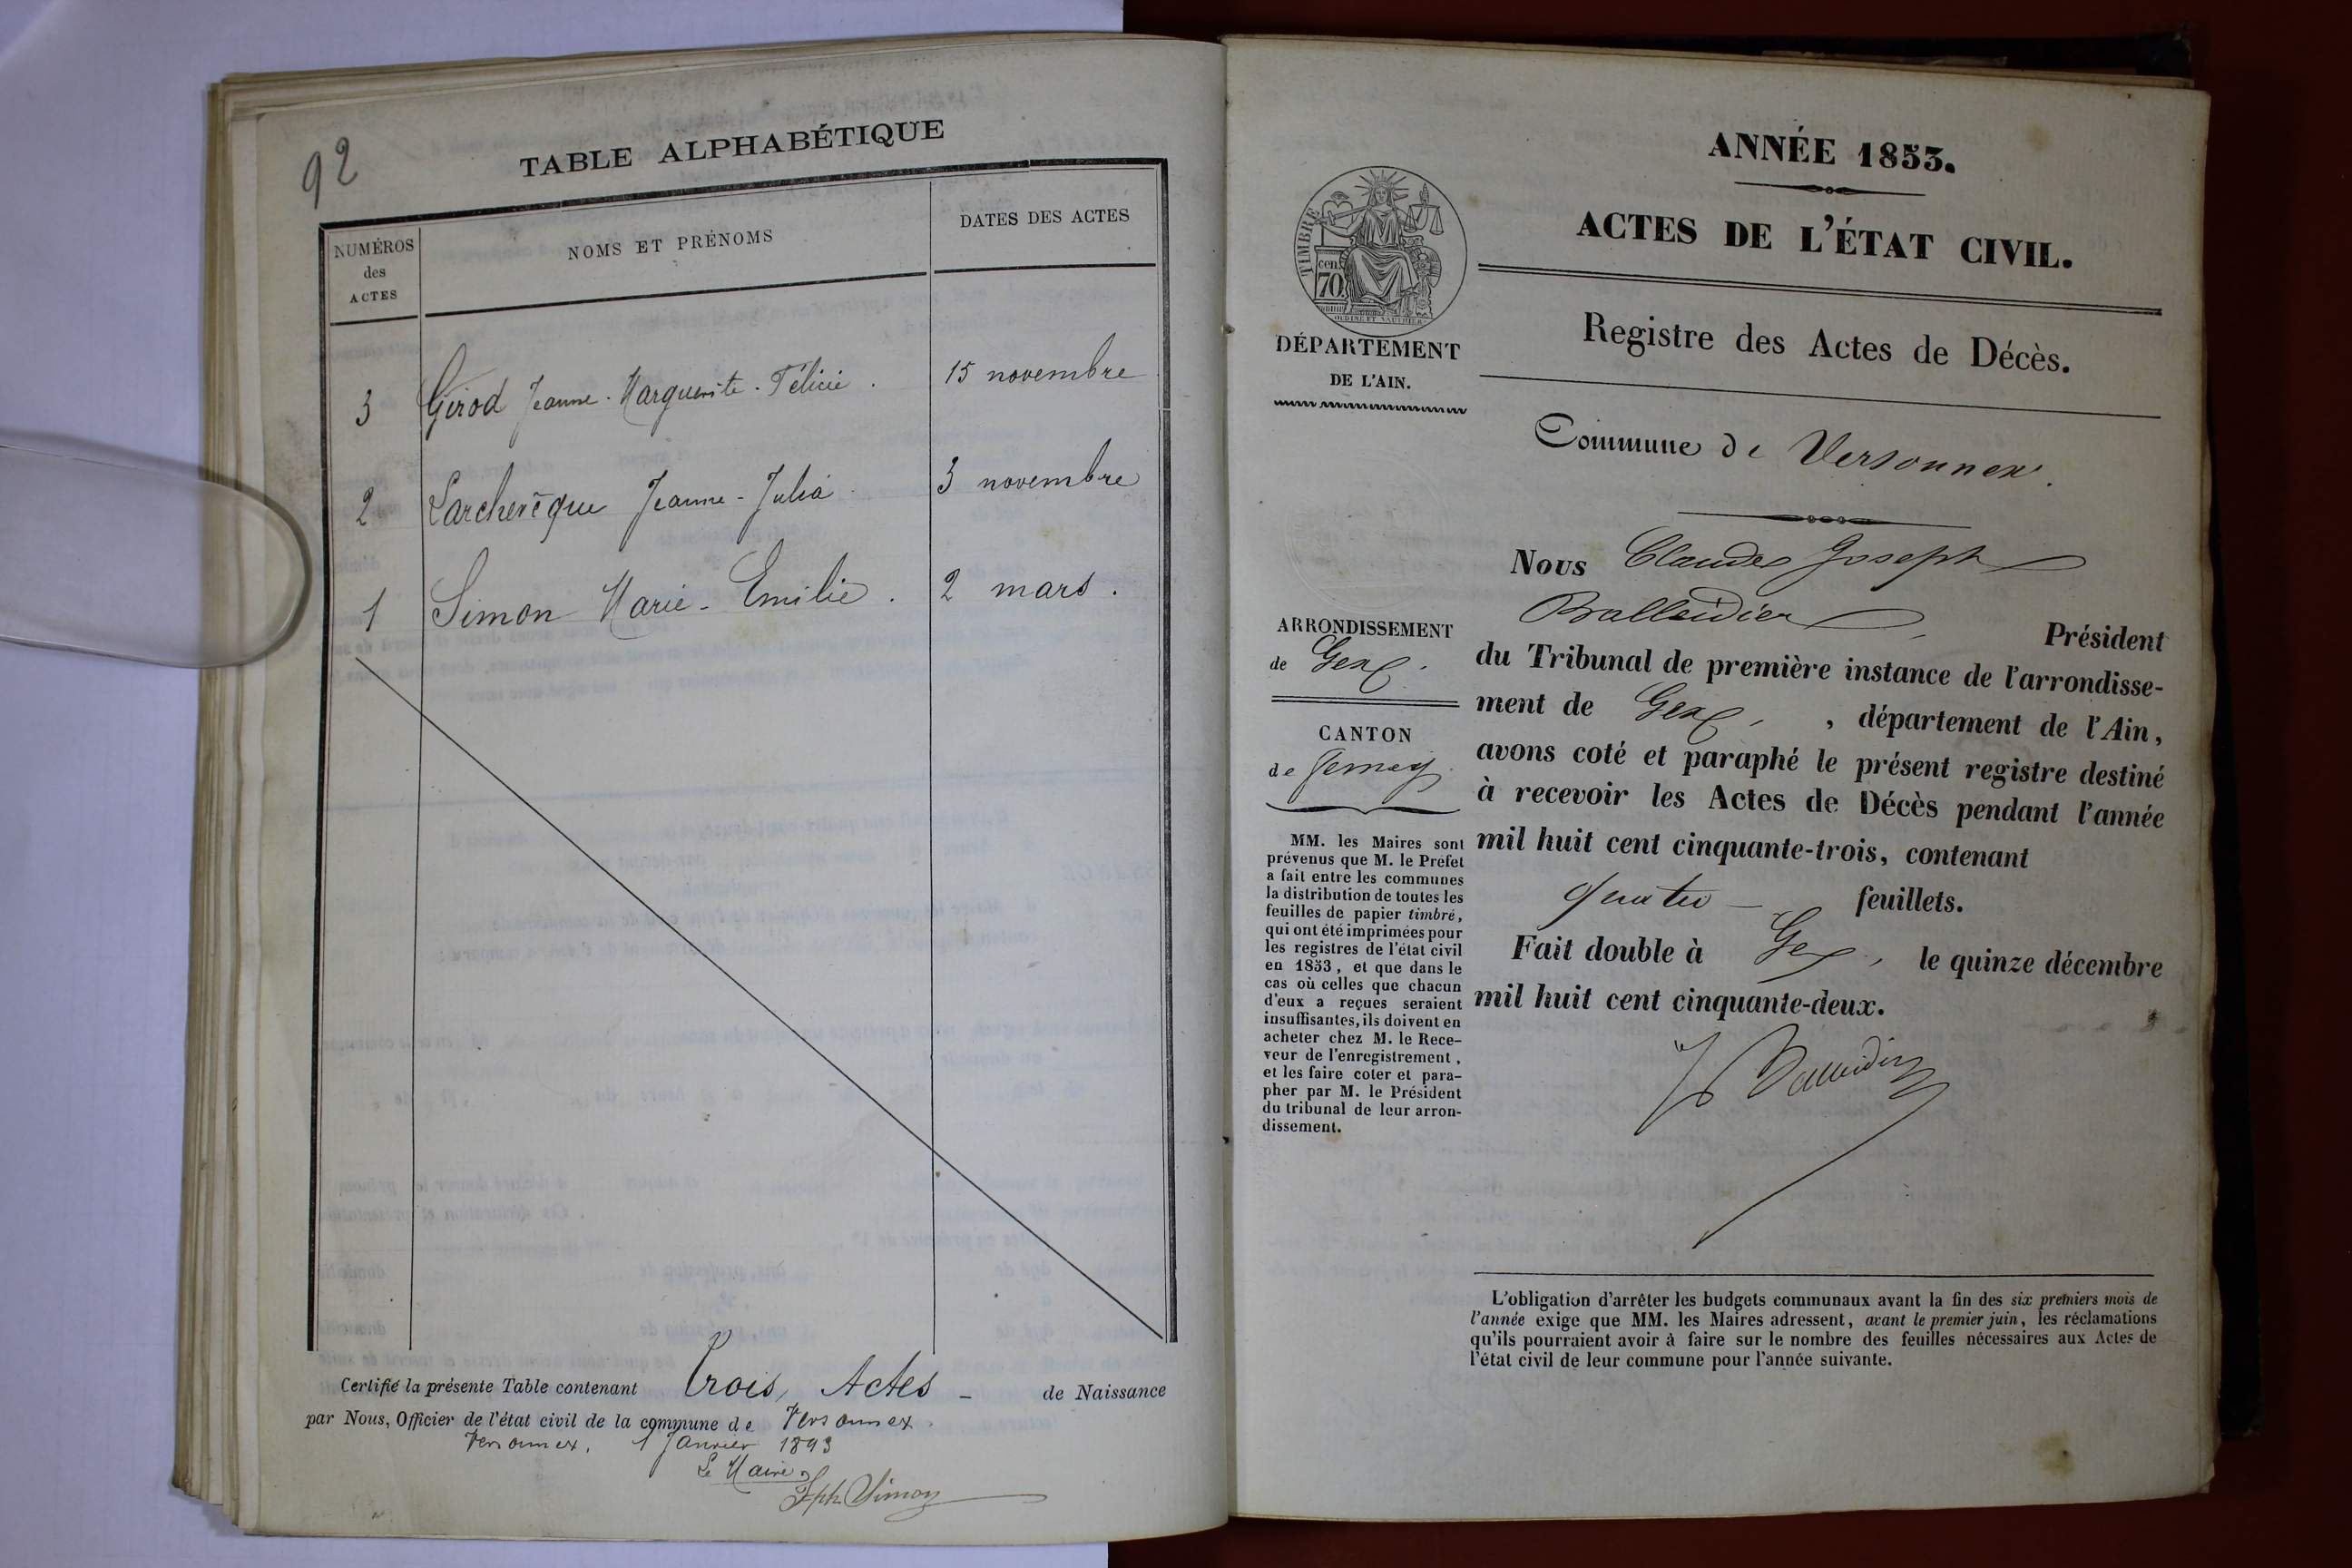 92
TABLE ALPHABÉTIQUE
NUMÉROS
des
ACTES
NOMS ET PRÉNOMS
DATES DES ACTES
3 Girod Jeanne-Marguerite-Félicie. 15 novembre
2 Larchevêque Jeanne-Julia 3 novembre
1 Simon Marie-Emilie. 2 mars.
Certifié la présente Table contenant Trois Actes - de Naissance
par Nous, Officier de l'état civil de la commune de Versonnex.
Versonnex, 1 Janvier 1893
Le Maire
Jph Simon
ANNÉE 1853.
ACTES DE L'ÉTAT CIVIL.
TIMBRE
cen.
70.
DÉPARTEMENT
DE L'AIN.
Registre des Actes de Décès.
Commune de Versonnex.
Nous Claude Joseph
Balleidier, Président
du Tribunal de première instance de l'arrondisse-
ment de Gex, , département de l'Ain,
avons coté et paraphé le présent registre destiné
à recevoir les Actes de Décès pendant l'année
mil huit cent cinquante-trois, contenant
quatre feuillets.
Fait double à Gex, le quinze décembre
mil huit cent cinquante-deux.
Balleidier
ARRONDISSEMENT
de Gex.
CANTON
de Ferney
MM. les Maires sont
prévenus que M. le Préfet
a fait entre les communes
la distribution de toutes les
feuilles de papier timbré,
qui ont été imprimées pour
les registres de l'état civil
en 1853, et que dans le
cas où celles que chacun
d'eux a reçues seraient
insuffisantes, ils doivent en
acheter chez M. le Rece-
veur de l'enregistrement,
et les faire coter et para-
pher par M. le Président
du tribunal de leur arron-
dissement.
L'obligation d'arrêter les budgets communaux avant la fin des six premiers mois de
l'année exige que MM. les Maires adressent, avant le premier juin, les réclamations
qu'ils pourraient avoir à faire sur le nombre des feuilles nécessaires aux Actes de
l'état civil de leur commune pour l'année suivante.